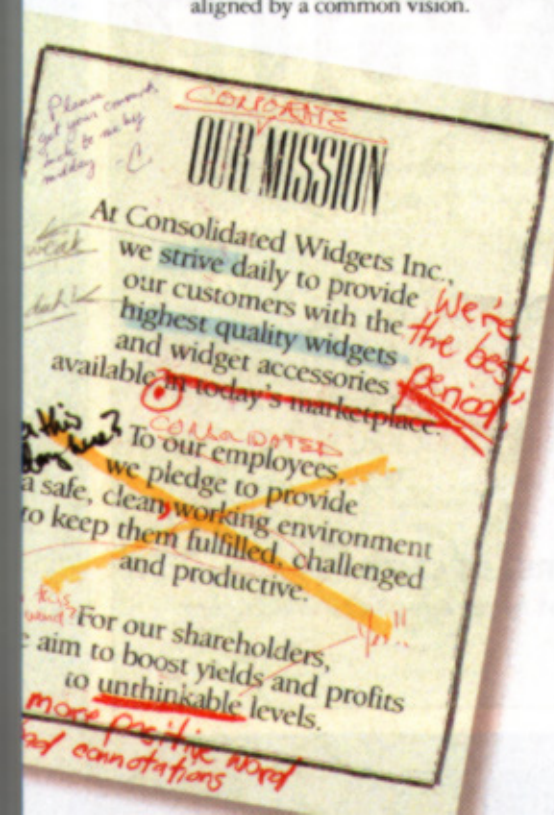 aligned by a common vision.
Please
get your comments
back to me by
midday -C.
CORPORATE
OUR MISSION
At Consolidated Widgets Inc.,
weak
we strive daily to provide
our customers with the
duh!
highest quality widgets
We're
the best,
period.
and widget accessories
available in today's marketplace.
this
To our employees,
we pledge to provide
a safe, clean, working environment
to keep them fulfilled, challenged
and productive.
this
word?
For our shareholders,
aim to boost yields and profits
to unthinkable levels.
more positive word
bad connotations